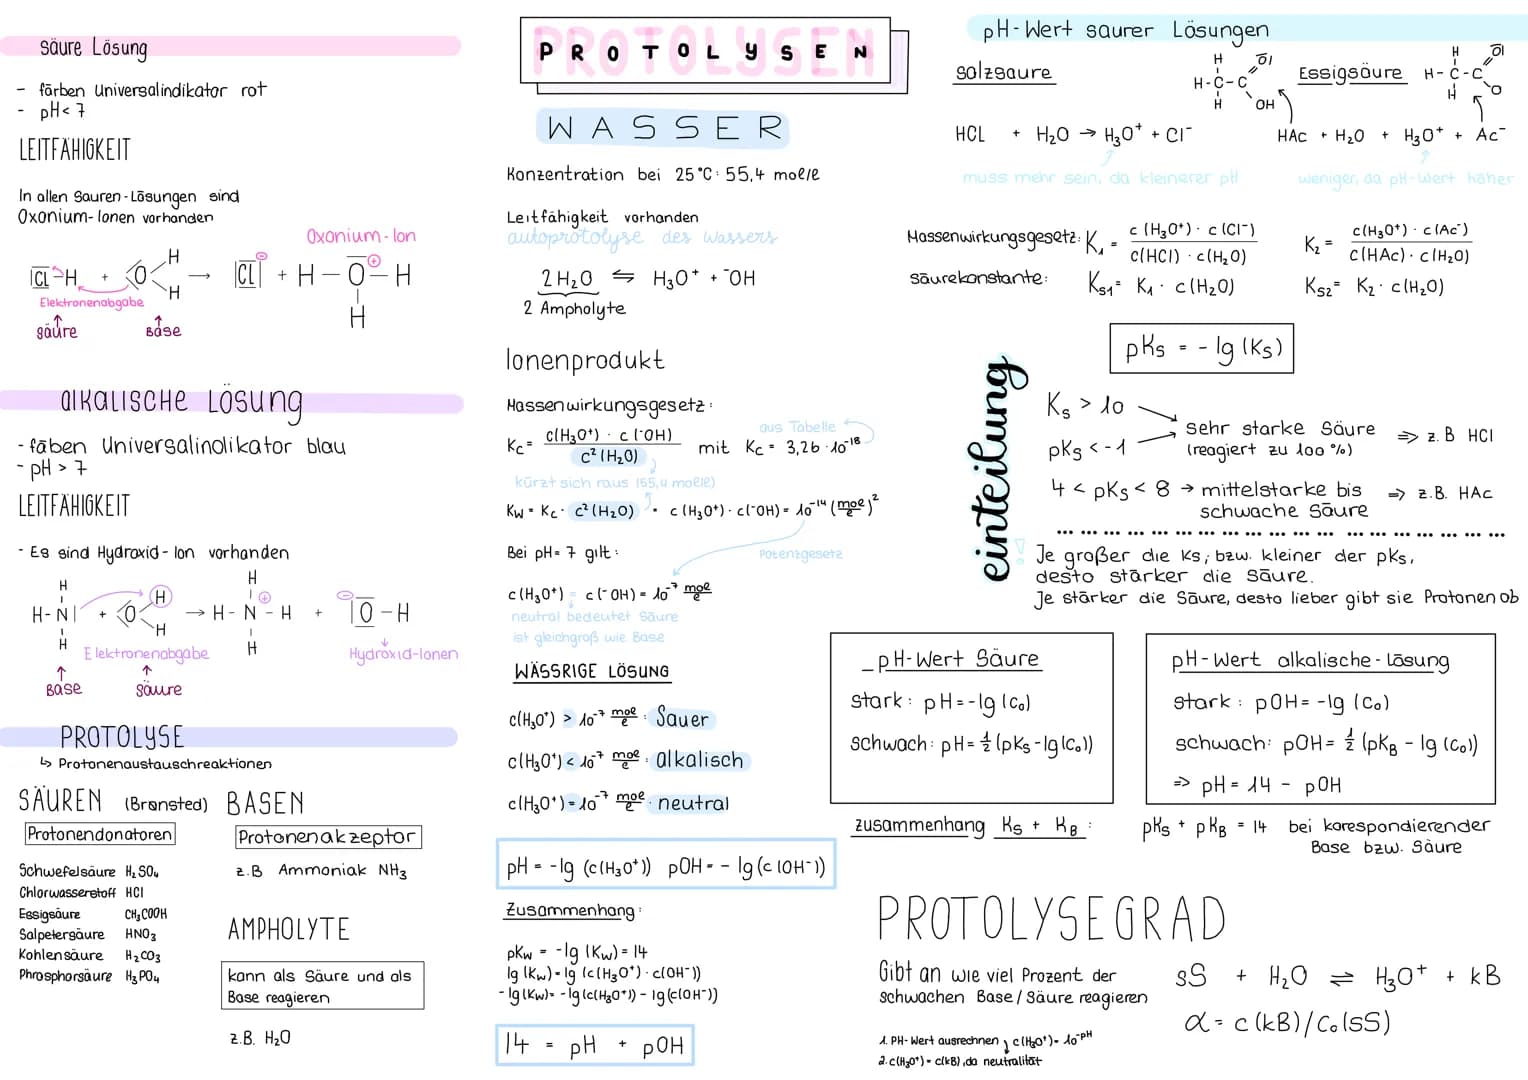 säure Lösung
- färben Universalindikator rot
- pH < 7
LEITFÄHIGKEIT
In allen Sauren-Lösungen sind
Oxonium-Ionen vorhanden
Oxonium-Ion
CL-H + O H H → CL ⊖ + H-O⊕-H H
Elektronenabgabe
säure Base
alkalische Lösung
- fäben Universalindikator blau
- pH > 7
LEITFÄHIGKEIT
- Es sind Hydroxid-Ion vorhanden
H-N H H + O H H → H-N⊕-H H H + ⊖ O-H
Elektronenabgabe
Hydroxid-Ionen
Base säure
PROTOLYSE
↳ Protonenaustauschreaktionen
SÄUREN (Brønsted)
Protonendonatoren
Schwefelsäure H₂SO₄
Chlorwasserstoff HCl
Essigsäure CH₃COOH
Salpetersäure HNO₃
Kohlensäure H₂CO₃
Phrosphorsäure H₃PO₄
BASEN
Protonenakzeptor
z.B Ammoniak NH₃
AMPHOLYTE
kann als Säure und als
Base reagieren
z.B. H₂O
PROTOLYSEN
PROTOLYSEN
WASSER
Konzentration bei 25°C: 55,4 mol/l
Leitfähigkeit vorhanden
autoprotolyse des Wassers
2 H₂O ⇌ H₃O⁺ + ⁻OH
2 Ampholyte
Ionenprodukt
Massenwirkungsgesetz:
Kc = c(H₃O⁺) · c(⁻OH) / c²(H₂O) mit Kc = 3,26 · 10⁻¹⁸
aus Tabelle
kürzt sich raus (55,4 mol/l)
Kw = Kc · c²(H₂O) · c(H₃O⁺) · c(⁻OH) = 10⁻¹⁴ (mol/l)²
Bei pH = 7 gilt:
Potenzgesetz
c(H₃O⁺) = c(⁻OH) = 10⁻⁷ mol/l
neutral bedeutet Säure
ist gleichgroß wie Base
WÄSSRIGE LÖSUNG
c(H₃O⁺) > 10⁻⁷ mol/l : Sauer
c(H₃O⁺) < 10⁻⁷ mol/l : alkalisch
c(H₃O⁺) = 10⁻⁷ mol/l : neutral
pH = -lg (c(H₃O⁺)) pOH = -lg (c(OH⁻))
Zusammenhang:
pKw = -lg (Kw) = 14
lg (Kw) = lg (c(H₃O⁺) · c(OH⁻))
-lg (Kw) = -lg (c(H₃O⁺)) - lg (c(OH⁻))
14 = pH + pOH
pH-Wert saurer Lösungen
salzsaure
H-C-C H H O OH
Essigsäure
H-C-C H H O O
HCL + H₂O → H₃O⁺ + Cl⁻
HAc + H₂O + H₃O⁺ + Ac⁻
muss mehr sein, da kleinerer pH
weniger, da pH-Wert höher
Massenwirkungsgesetz: K₁ = c(H₃O⁺) · c(Cl⁻) / c(HCl) · c(H₂O)
K₂ = c(H₃O⁺) · c(Ac⁻) / c(HAc) · c(H₂O)
säurekonstante: Ks1 = K₁ · c(H₂O)
Ks2 = K₂ · c(H₂O)
pKs = -lg (Ks)
einteilung
Ks > 10
pKs < -1
sehr starke Säure
(reagiert zu 100%)
⇒ z.B HCl
4 < pKs < 8 → mittelstarke bis
schwache Säure
⇒ z.B. HAc
! Je größer die Ks; bzw. kleiner der pKs,
desto stärker die Säure.
Je stärker die Säure, desto lieber gibt sie Protonen ab
_pH-Wert Säure
stark: pH = -lg (C₀)
schwach: pH = ½ (pKs - lg (C₀))
pH-Wert alkalische-Lösung
stark: pOH = -lg (C₀)
schwach: pOH = ½ (pKB - lg (C₀))
⇒ pH = 14 - pOH
zusammenhang Ks + KB:
pKs + pKB = 14 bei korespondierender
Base bzw. Säure
PROTOLYSEGRAD
Gibt an wie viel Prozent der
schwachen Base/Säure reagieren
1. PH-Wert ausrechnen, c(H₃O⁺) = 10⁻ᵖᴴ
2. c(H₃O⁺) = c(kB), da neutralität
sS + H₂O ⇌ H₃O⁺ + kB
α = c(kB)/C₀(sS)